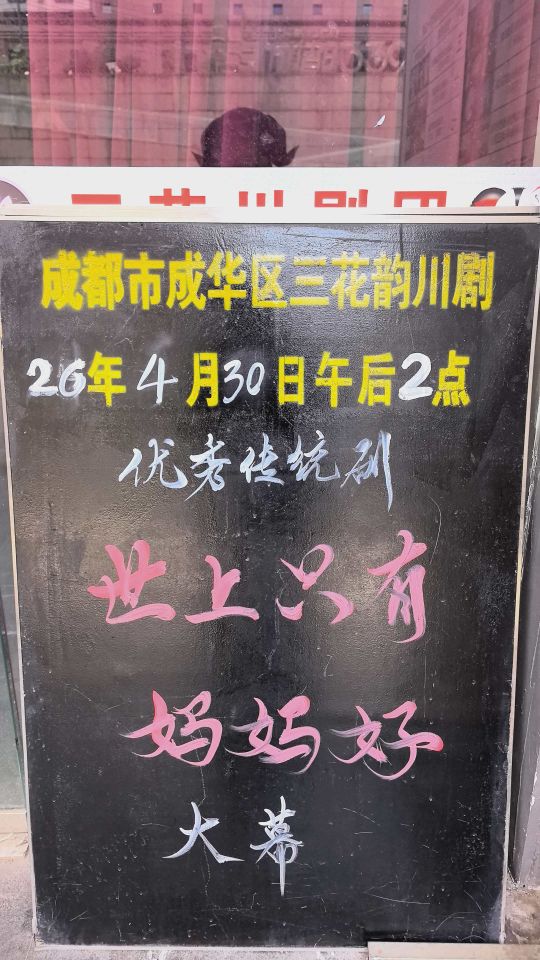 三花川剧团
成都市成华区三花韵川剧
26年4月30日午后2点
优秀传统剧
世上只有
妈妈好
大幕